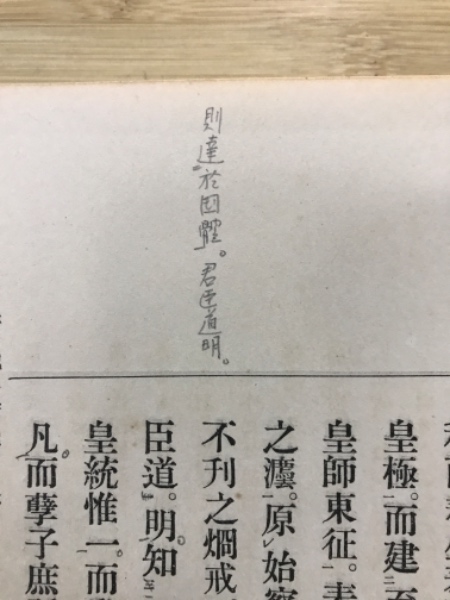 則達於国體。君臣道明。
皇極。而建
皇師東征。
之灋。原始
不刊之烱戒
臣道。明知
皇統惟一。而
凡。而孽子庶